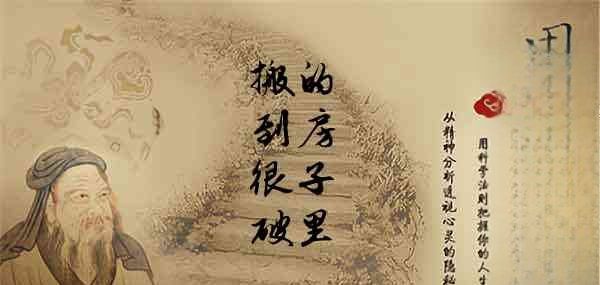 搬到很破
的房子里
用科学法则把握你的人生
从精神分析透视心灵的隐秘